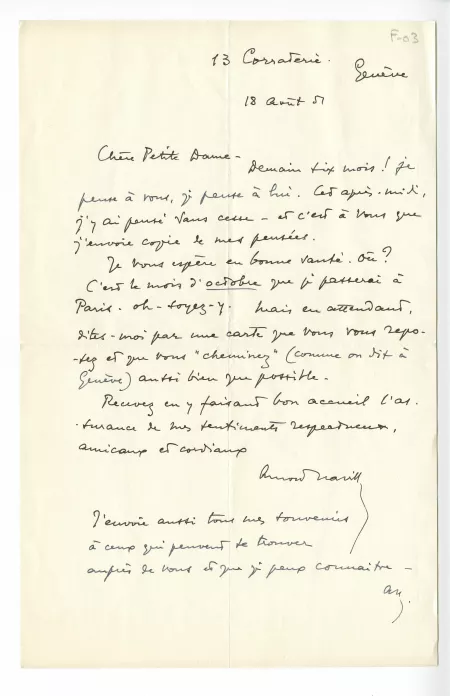 F-03
13 Corraterie.
Genève
18 Août 51
Chère Petite Dame -
Demain six mois! je
pense à vous, je pense à lui. Cet après-midi,
j'y ai pensé sans cesse - et c'est à vous que
j'envoie copie de mes pensées.
Je vous espère en bonne santé. Où?
C'est le mois d'octobre que je passerai à
Paris. oh-soyez-y. Mais en attendant,
dites-moi par une carte que vous vous repo-
-sez et que vous "cheminez" (comme on dit à
Genève) aussi bien que possible.
Recevez en y faisant bon accueil l'as-
-surance de mes sentiments respectueux,
amicaux et cordiaux
Arnold Naville
J'envoie aussi tous mes souvenirs
à ceux qui peuvent se trouver
auprès de vous et que je peux connaître -
AN.